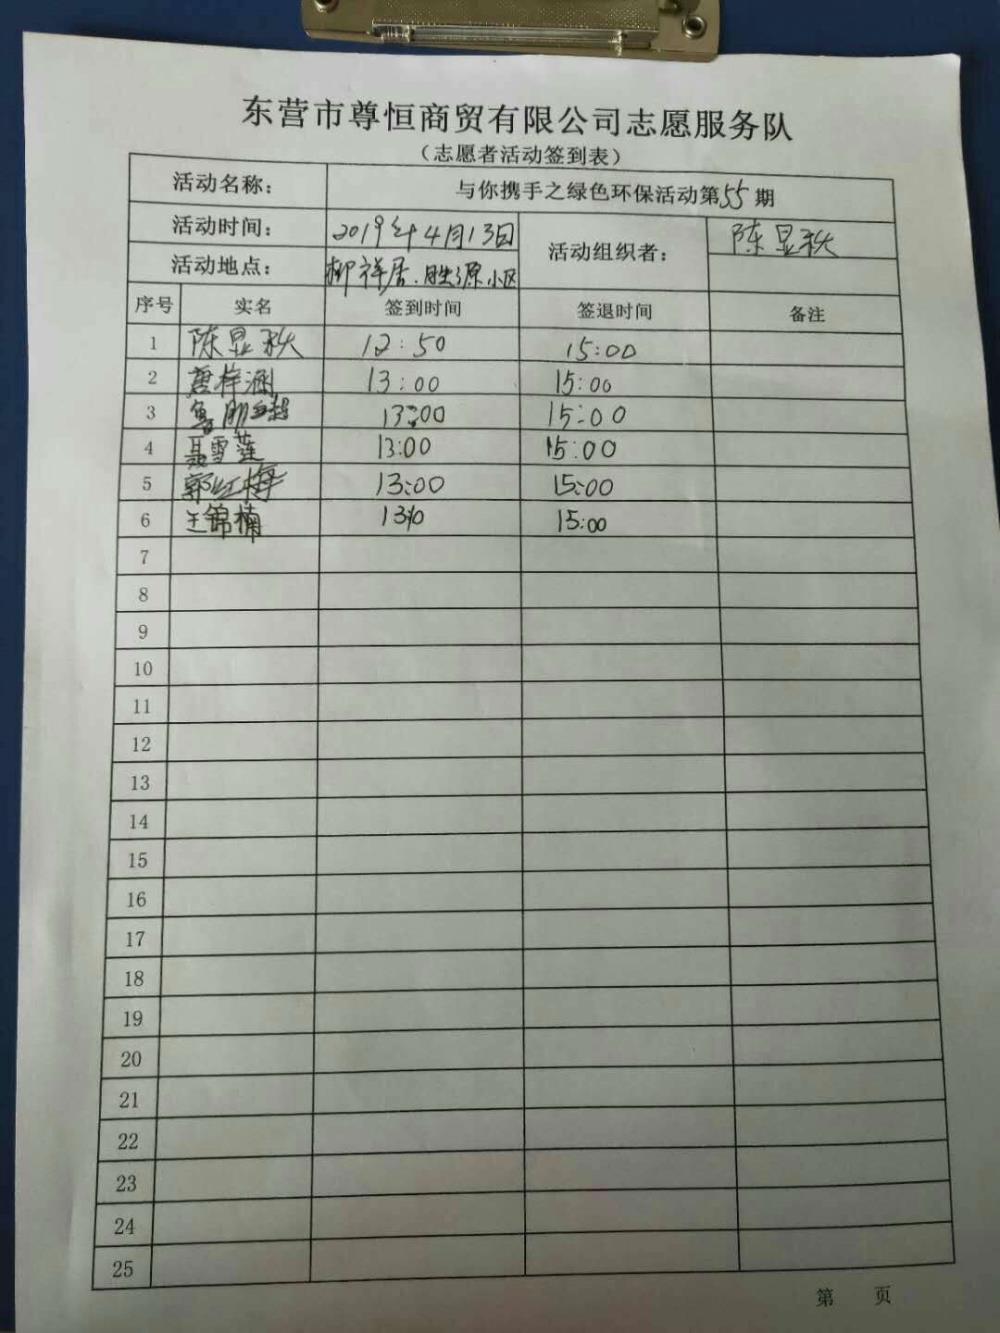 东营市尊恒商贸有限公司志愿服务队
（志愿者活动签到表）
活动名称： 与你携手之绿色环保活动第55期
活动时间： 2019年4月13日 活动组织者： 陈显秋
活动地点： 柳祥居.胜源小区
序号 实名 签到时间 签退时间 备注
1 陈显秋 12:50 15:00
2 唐梓涵 13:00 15:00
3 13:00 15:00
4 聂雪莲 13:00 15:00
5 郭红梅 13:00 15:00
6 王锦楠 15:00
7
8
9
10
11
12
13
14
15
16
17
18
19
20
21
22
23
24
25
第 页